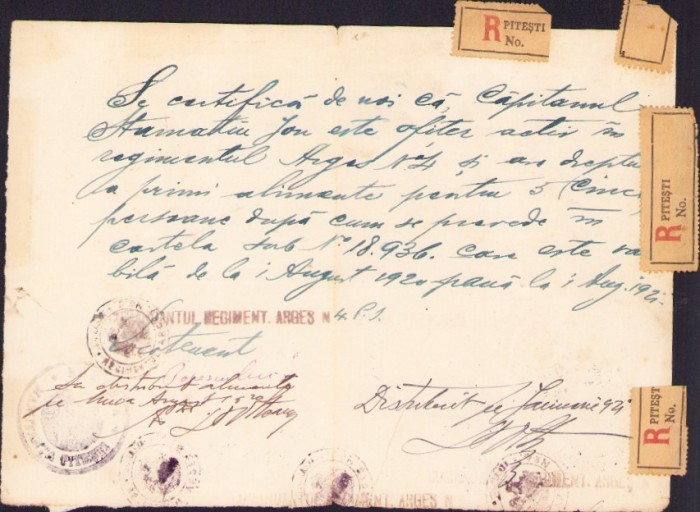 R PITEȘTI
No.
Se certifică de noi că, Căpitanul
Stamatiu Ion este ofițer activ în
regimentul Argeș No 4 și are dreptul
a primi alimente pentru 5 (Cinci
persoane după cum se prevede în
cartela sub No 18.936. care este va
bilă de la 1 August 1920 până la 1 Aug. 192
R PITEȘTI
No.
REGIMENT. ARGEȘ N 4. P.J.
Locotenent
S'a distribuit alimente
pe luna August 1920
Distribuit pe Ianuarie 921
R PITEȘTI
No.
REGIMENT. ARGEȘ N
REGIMENT. ARGEȘ N